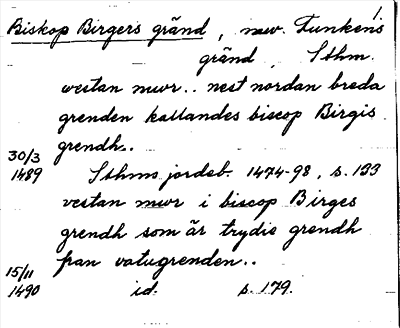 1.
Biskop Birgers gränd, nuv. Funkens
gränd, Sthm.
westan mwr.. nest nordan breda
grenden kallandes biscop Birgis
grendh..
30/3
1489 Sthms jordeb. 1474-98, s. 133
vestan mwr i biscop Birges
grendh som är trydie grendh
fran vatugrenden..
15/11
1490 id. s. 179.